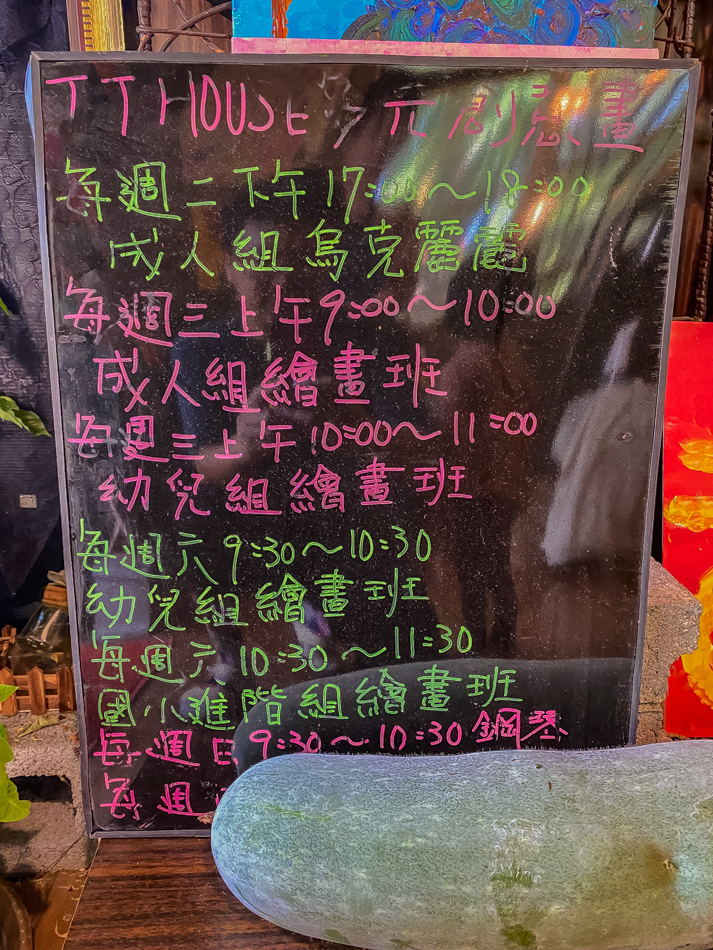 TT HOUSE 多元創意畫
每週二下午17:00～18:00
成人組烏克麗麗
每週三上午9:00～10:00
成人組繪畫班
每週三上午10:00～11:00
幼兒組繪畫班
每週六9:30～10:30
幼兒組繪畫班
每週六10:30～11:30
國小進階組繪畫班
每週日9:30～10:30鋼琴
每週